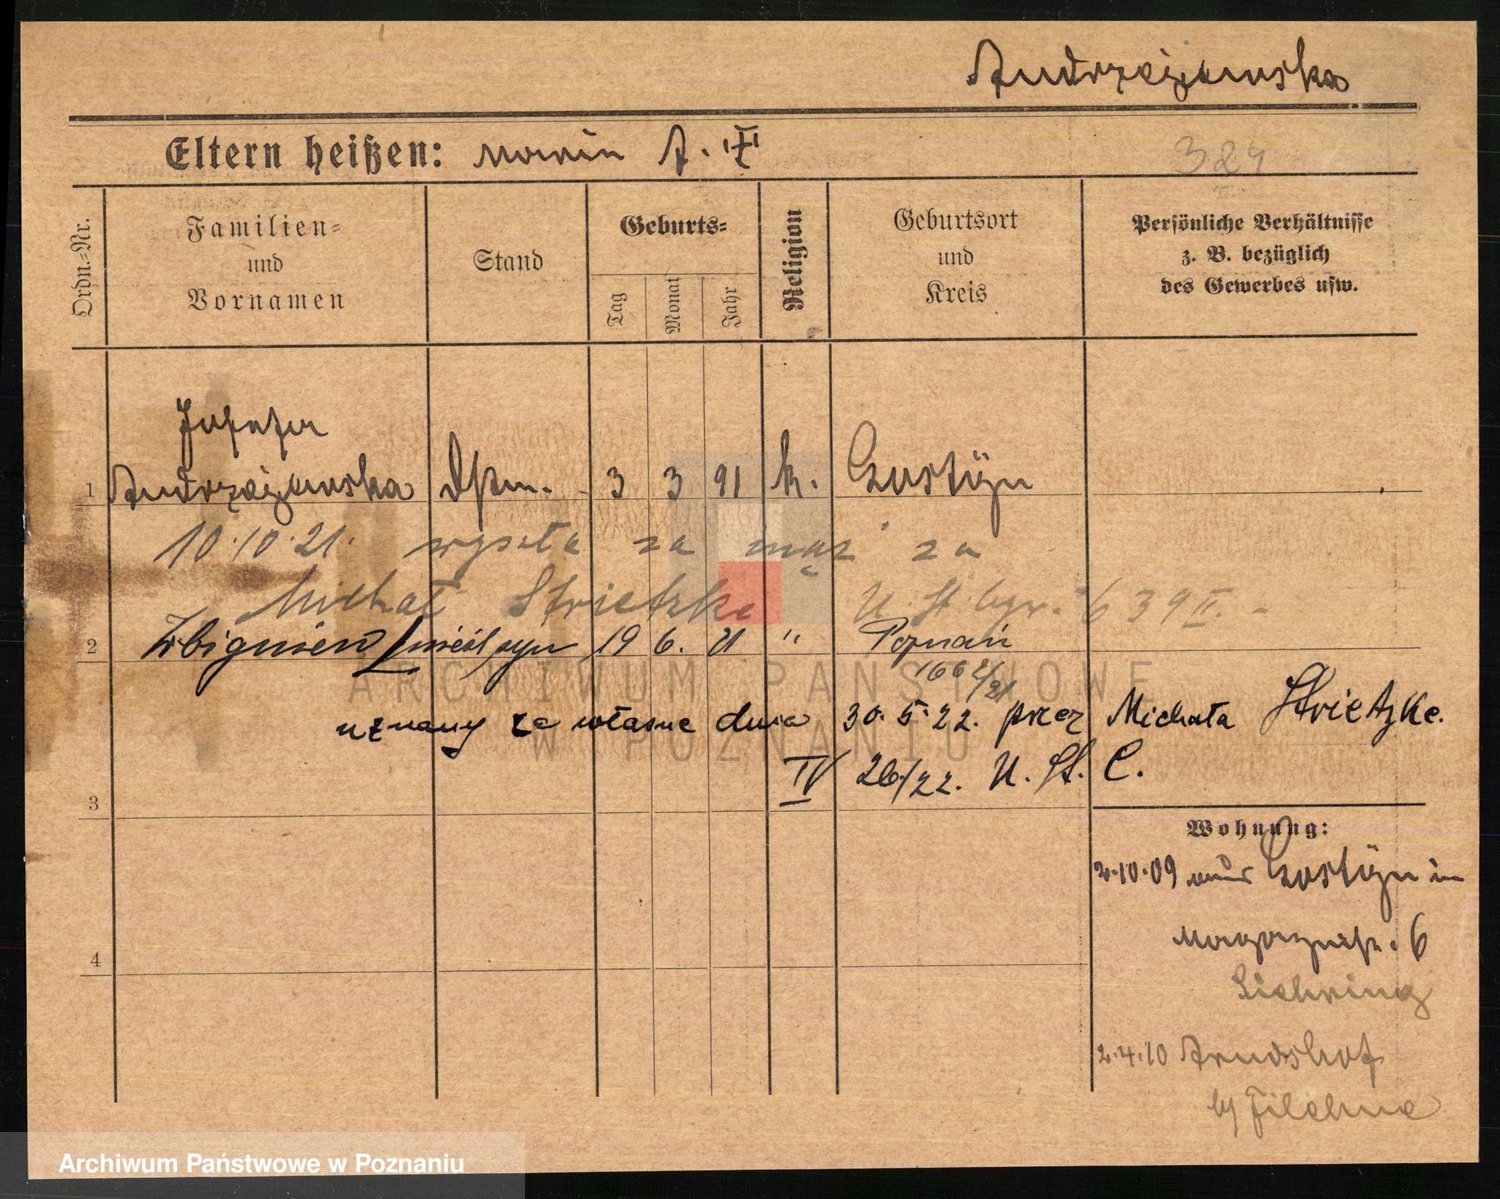 Andrzejewska
Eltern heißen: Maria A.
324
Ordn.-Nr.
Familien- und Vornamen
Stand
Geburts-
Tag
Monat
Jahr
Religion
Geburtsort und Kreis
Persönliche Verhältnisse
z. B. bezüglich
des Gewerbes usw.
Josefa
1 Andrzejewska 3 3 91 k. Gostÿn
10.10.21. wyszła za mąż za
Michał Strietzke U. St.
2 Zbigniew syn 19 6. 21 " Poznań
1662/21
uznany za własne dnia 30.5.22. przez Michała Strietzke.
IV 26/22. U. St. C.
3
Wohnung:
2.10.09 aus Gostÿn in
Magazinstr. 6
4
2.4.10 Arndshof
by Filehne
ARCHIWUM PAŃSTWOWE
W POZNANIU
Archiwum Państwowe w Poznaniu